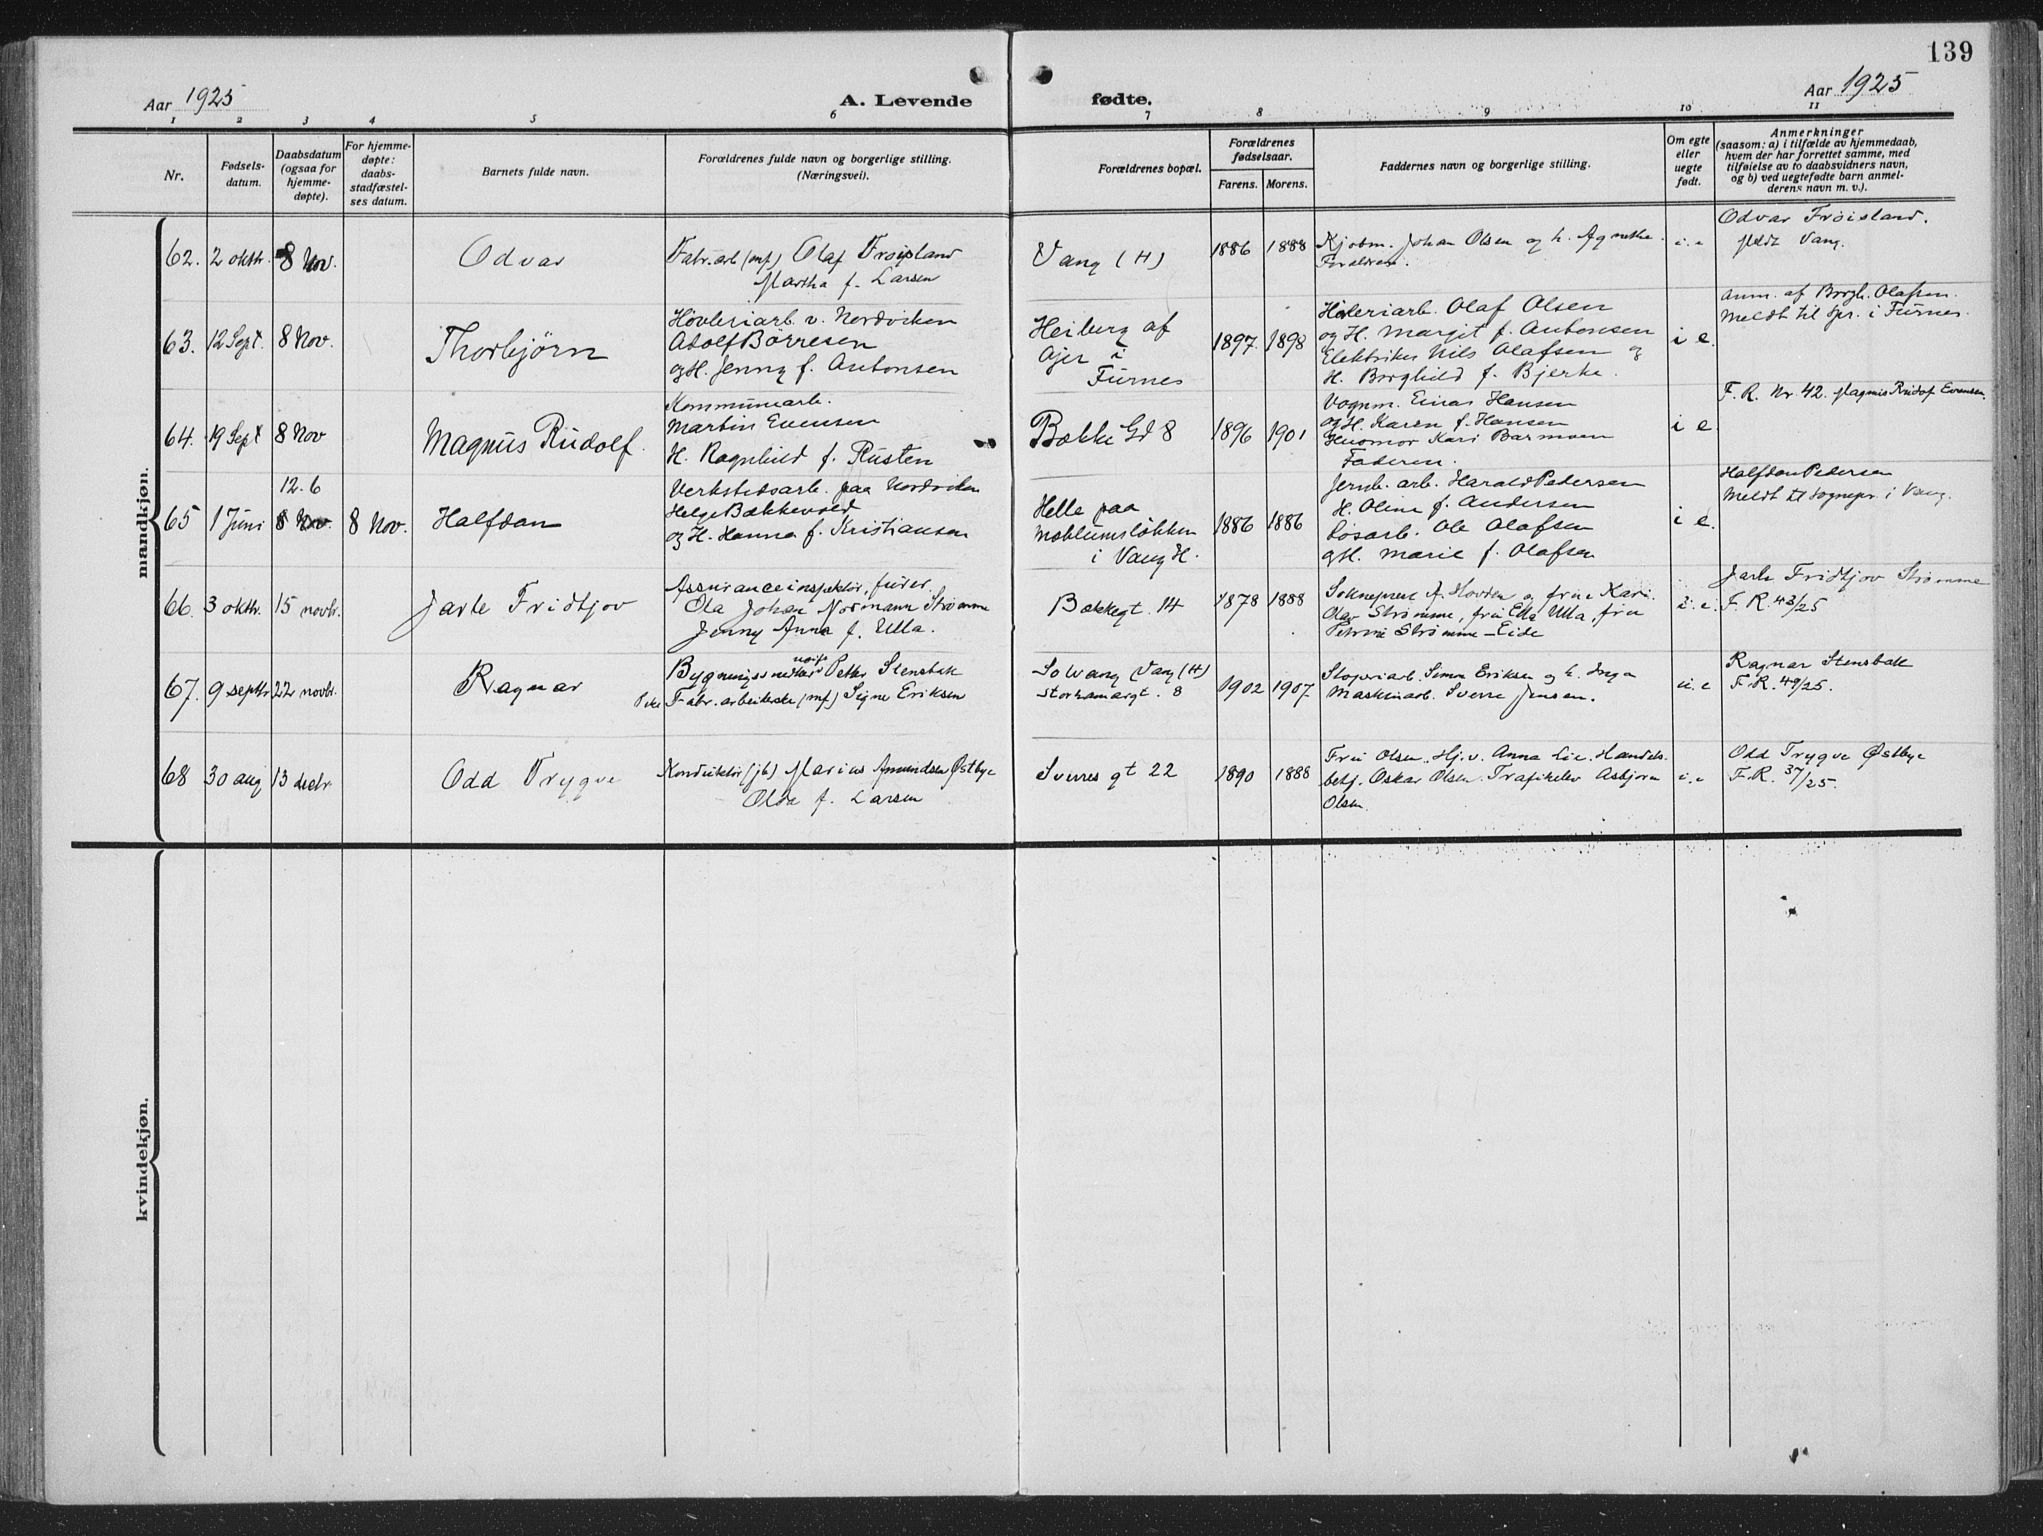 139
Aar 1925
A. Levende fødte.
Aar 1925
1 2 3 4 5 6 7 8 9 10 11
Nr.
Fødsels-
datum.
Daabsdatum
(ogsaa for
hjemme-
døpte).
For hjemme-
døpte:
daabs-
stadfæstel-
ses datum.
Barnets fulde navn.
Forældrenes fulde navn og borgerlige stilling.
(Næringsvei).
Forældrenes bopæl.
Forældrenes
fødselsaar.
Farens. Morens.
Faddernes navn og borgerlige stilling.
Om egte
eller
uegte
født.
Anmerkninger
(saasom: a) i tilfælde av hjemmedaab,
hvem der har forrettet samme, med
tilføielse av to daabsvidners navn,
og b) ved uegtefødte barn anmel-
derens navn m. v.).
mandkjøn.
62. 2 oktbr. 8 Nov. Odvar
Fabr. arb (mf) Olaf Frøisland
Martha f. Larsen
Vang (H)
1886 1888
Kjøbm. Johan Olsen og h. Agnethe.
Forældrene.
i. e
Odvar Frøisland.
Vang.
63. 12 Sept. 8 Nov. Thorbjørn
Høvleriarb. v. Nordviken
Adolf Børresen
og H. Jenny f. Antonsen
Heiberg af
Ajer i
Furnes
1897. 1898
Høvleriarb. Olaf Olsen
og H. Margit f. Antonsen
Elektriker Nils Olafsen og
H. Borghild f. Bjerke.
i e.
anm. af Borgh. Olafsen.
Meldt til Spr. i Furnes.
64. 19 Sept 8 Nov Magnus Rudolf.
Kommunearb.
Martin Evensen
H. Ragnhild f. Rusten
Bække Gd 8
1896 1901
Vognm. Einar Hansen
og H. Karen f. Hansen
Kari
Faderen.
i e
F. R. Nr. 42. Magnus Rudolf Evensen.
65 1 Juni
12. 6
8 Nov.
8 Nov. Halfdan
Verkstedsarb. paa Nordviken
Helge Bækkevold
og H. Hanna f. Kristiansen
Helle paa
i Vang H.
1886 1886
Jernb. arb. Harald Pedersen
H. Oline f. Andersen
Løsarb. Ole Olafsen
og H. Marie f. Olafsen
i e.
Halfdan Pedersen
Meldt til Sognepr. i Vang.
66. 3 oktbr. 15 novbr. Jarle Fridtjov
Assuranceinspektør, furer,
Ola Johan Normann Strømme
Jenny Anna f. Ulla.
Bækkegt. 14
1878 1888
Sokneprest A. Hovden og frue Kari.
Olav Strømme, fru Ella Ulla, fru
Petrine Strømme-Eide
i. e.
Jarle Fridtjov Strømme
F. R. 43/25
67. 9 septbr 22 novbr. Ragnar
Bygningssnekker Petter Stensbak
Pike Fabr. arbeiderske (mf) Signe Eriksen
Solvang Vang (H)
Storhamargt. 8
1902 1907
Støperiarb. Simen Eriksen og h. Inga
Maskinarb. Sverre Jensen.
u. e
Ragnar Stensbak
F. R. 49/25.
68 30 aug 13 decbr. Odd Trygve
Konduktør (jb) Marius Amundsen Østbye
Olda f. Larsen
Sverres gt 22
1890 1888
Fru Olsen. Hj. v. Anna Lie. Handels-
betj. Oskar Olsen. Trafikelev Asbjørn
Olsen.
i. e
Odd Trygve Østbye
F. R. 37/25.
kvindekjøn.